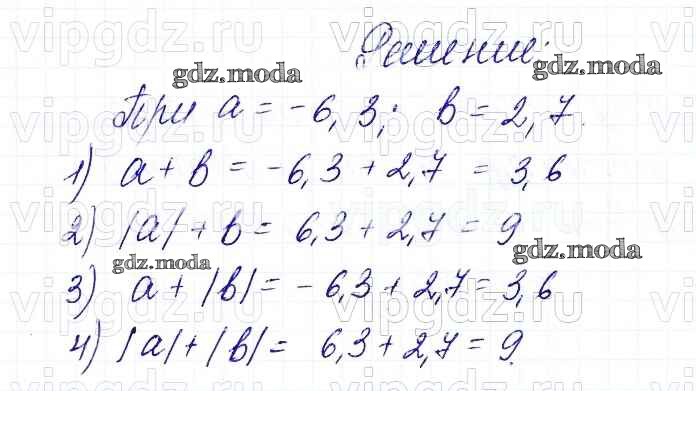 Решение:
При a = -6,3; b = 2,7.
1) a + b = -6,3 + 2,7 = 3,6
2) |a| + b = 6,3 + 2,7 = 9.
3) a + |b| = -6,3 + 2,7 = 3,6
4) |a| + |b| = 6,3 + 2,7 = 9.
gdz.moda
gdz.moda
gdz.moda
gdz.moda
vipgdz.ru